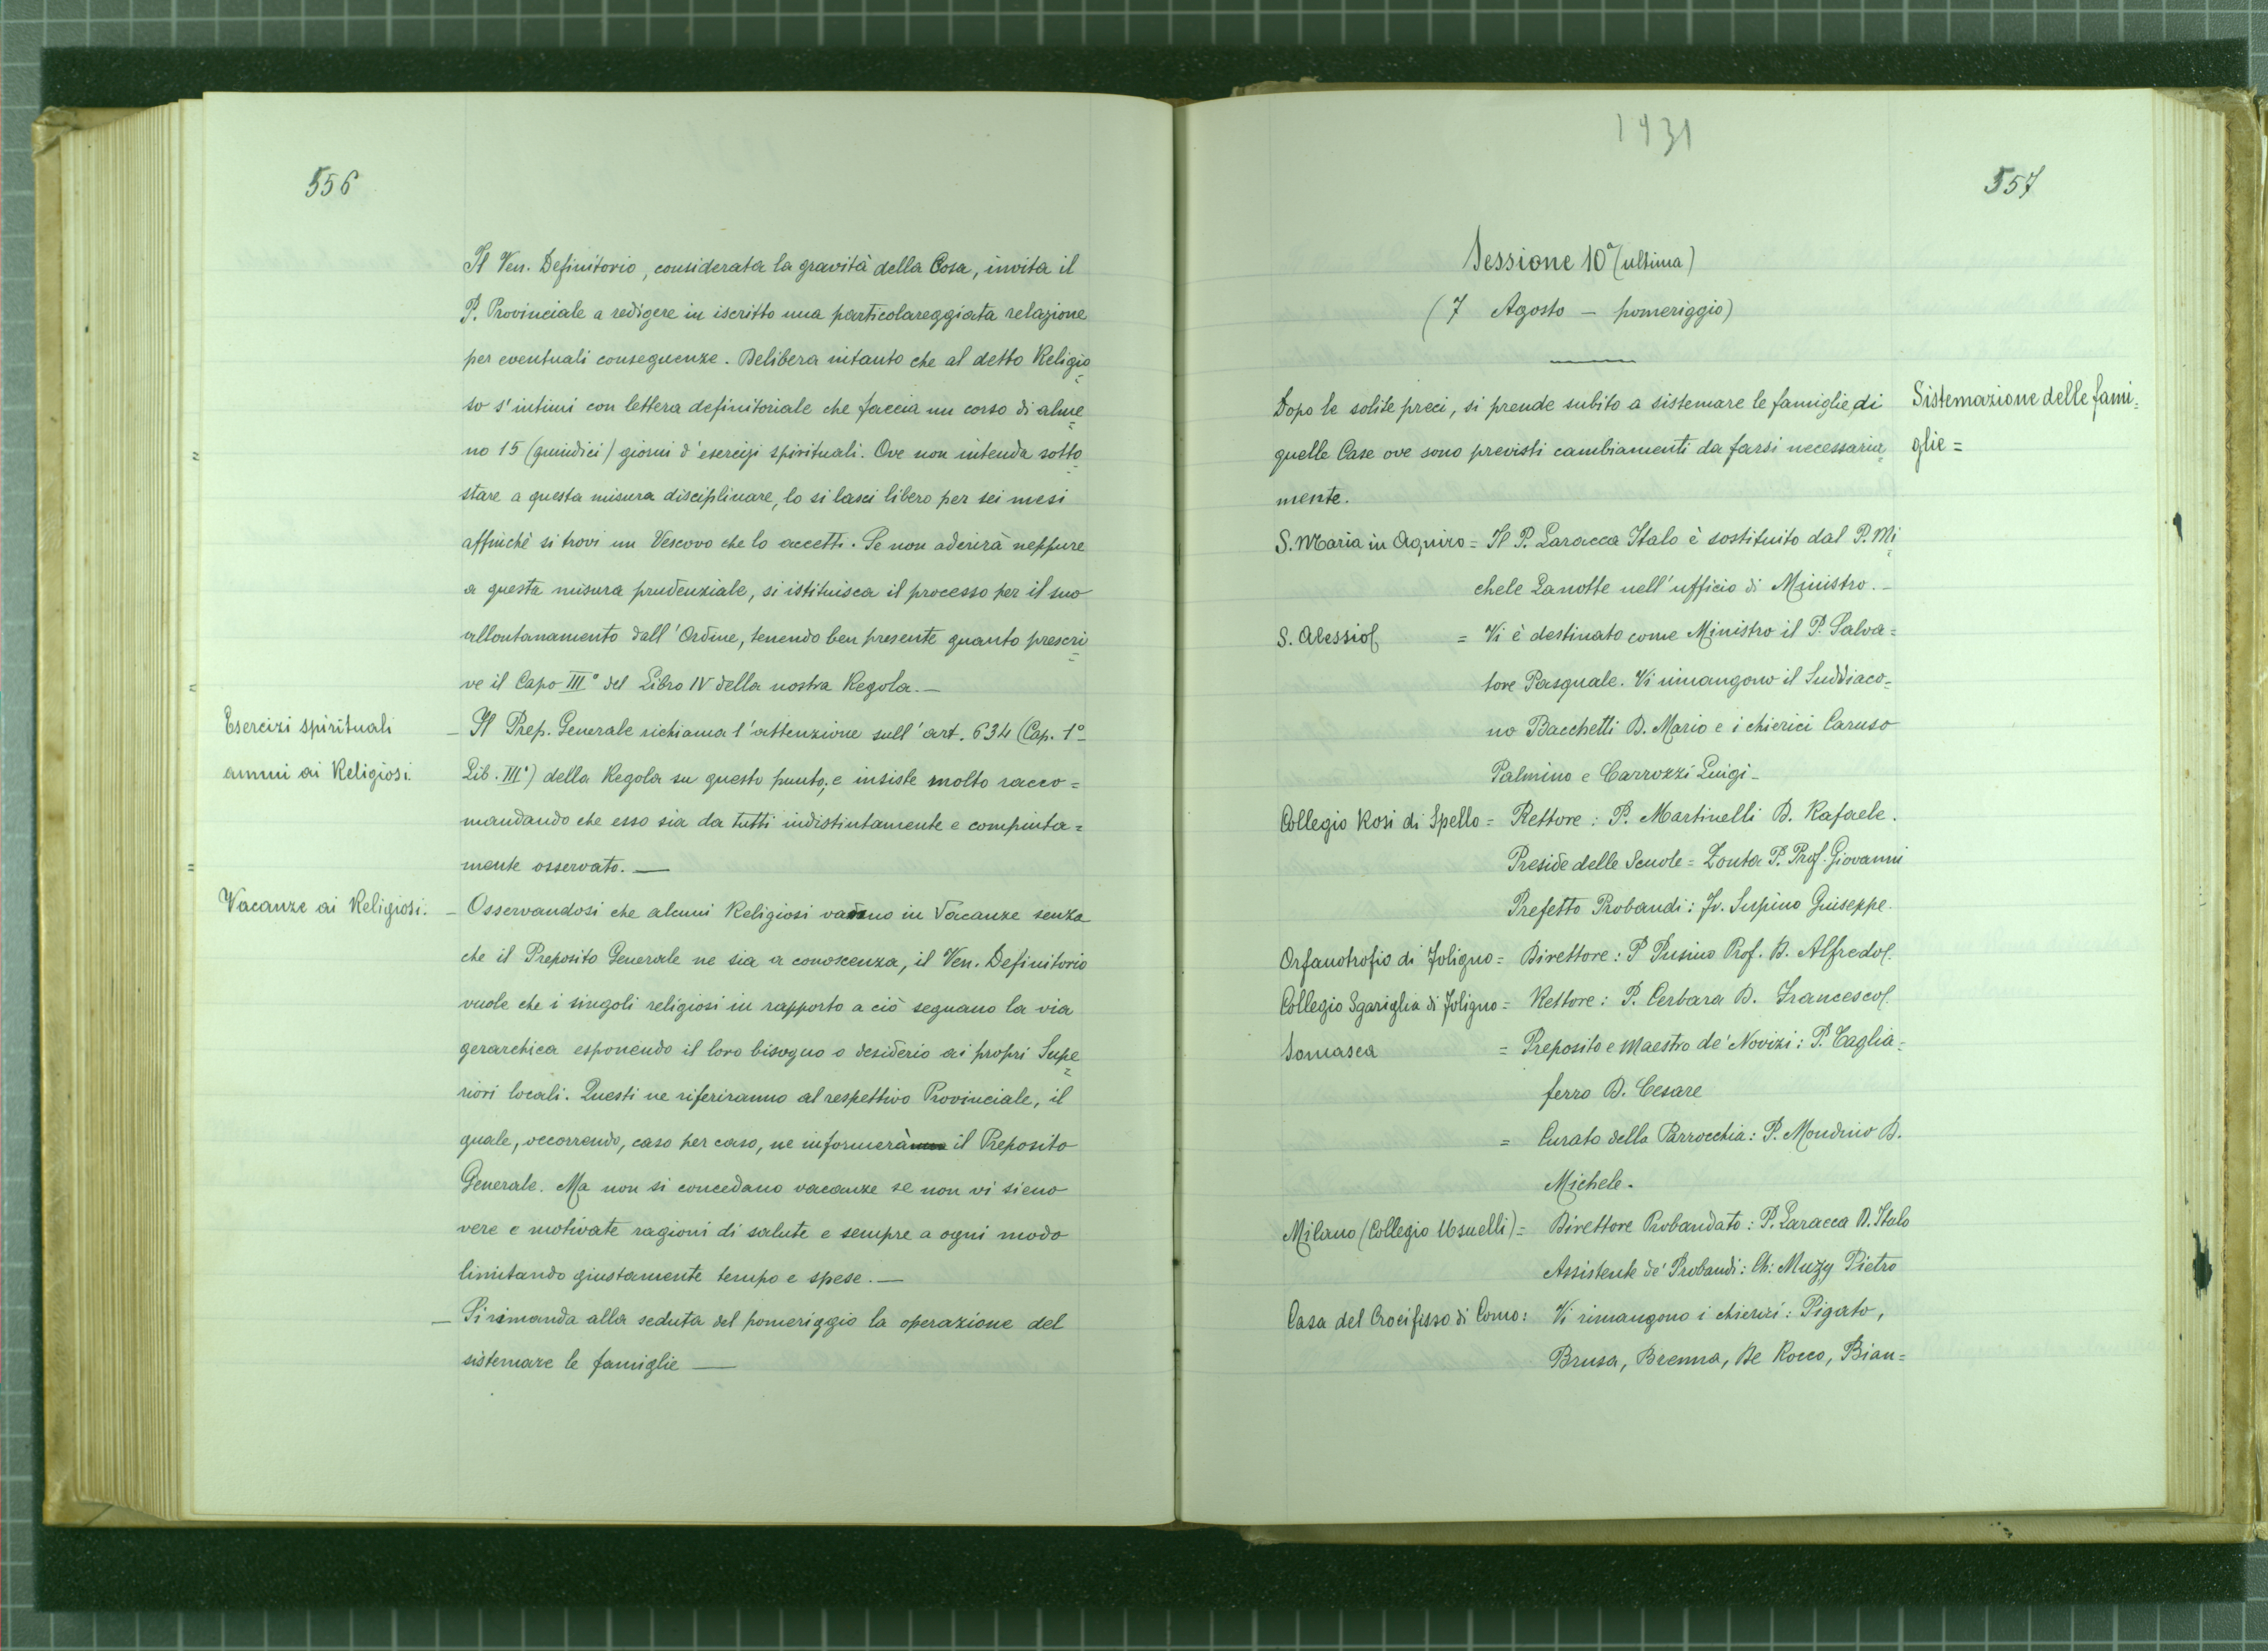 556
Il Ven. Definitorio, considerata la gravità della Cosa, invita il
P. Provinciale a redigere in iscritto una particolareggiata relazione
per eventuali conseguenze. Delibera intanto che al detto Religio=
so s'intimi con lettera definitoriale che faccia un corso di alme=
no 15 (quindici) giorni d'esercizi spirituali. Ove non intenda sotto=
stare a questa misura disciplinare, lo si lasci libero per sei mesi
affinchè si trovi un Vescovo che lo accetti. Se non aderirà neppure
a questa misura prudenziale, si istituisca il processo per il suo
allontanamento dall'Ordine, tenendo ben presente quanto prescri=
ve il Capo III° del Libro IV della nostra Regola.—
Esercizi spirituali
annui ai Religiosi
— Il Prep. Generale richiama l'attenzione sull'art. 634 (Cap. 1°
Lib. III°) della Regola su questo punto; e insiste molto racco=
mandando che esso sia da tutti indistintamente e compiuta=
mente osservato.—
Vacanze ai Religiosi.
— Osservandosi che alcuni Religiosi vadano in Vacanze senza
che il Preposito Generale ne sia a conoscenza, il Ven. Definitorio
vuole che i singoli religiosi in rapporto a ciò seguano la via
gerarchica esponendo il loro bisogno o desiderio ai propri Supe=
riori locali. Questi ne riferiranno al respettivo Provinciale, il
quale, occorrendo, caso per caso, ne informerà il Preposito
Generale. Ma non si concedano vacanze se non vi sieno
vere e motivate ragioni di salute e sempre a ogni modo
limitando giustamente tempo e spese.—
— Si rimanda alla seduta del pomeriggio la operazione del
sistemare le famiglie —
1931
557
Sessione 10ª (ultima)
(7 Agosto — pomeriggio)
Dopo le solite preci, si prende subito a sistemare le famiglie di
quelle Case ove sono previsti cambiamenti da farsi necessaria=
mente.
Sistemazione delle fami=
glie =
S. Maria in Aquiro = Il P. Laracca Italo è sostituito dal P. Mi=
chele Zanotte nell'ufficio di Ministro.—
S. Alessio = Vi è destinato come Ministro il P. Salva=
tore Pasquale. Vi rimangono il Suddiaco=
no Bacchetti D. Mario e i chierici Caruso
Palmino e Carrozzi Luigi—
Collegio Rosi di Spello = Rettore: P. Martinelli D. Rafaele.
Preside delle Scuole = Zonta P. Prof. Giovanni
Prefetto Probandi: Fr. Supino Giuseppe.
Orfanotrofio di Foligno = Direttore: P Pusino Prof. D. Alfredo.
Collegio Sgariglia di Foligno = Rettore: P. Cerbara D. Francesco.
Somasca = Preposito e Maestro de' Novizi: P. Taglia=
ferro D. Cesare
= Curato della Parrocchia: P. Mondino D.
Michele.
Milano (Collegio Usuelli) = Direttore Probandato: P. Laracca D. Italo
Assistente de' Probandi: Ch: Muzy Pietro
Casa del Crocifisso di Como: Vi rimangono i chierici: Pigato,
Brusa, Brenna, De Rocco, Bian=